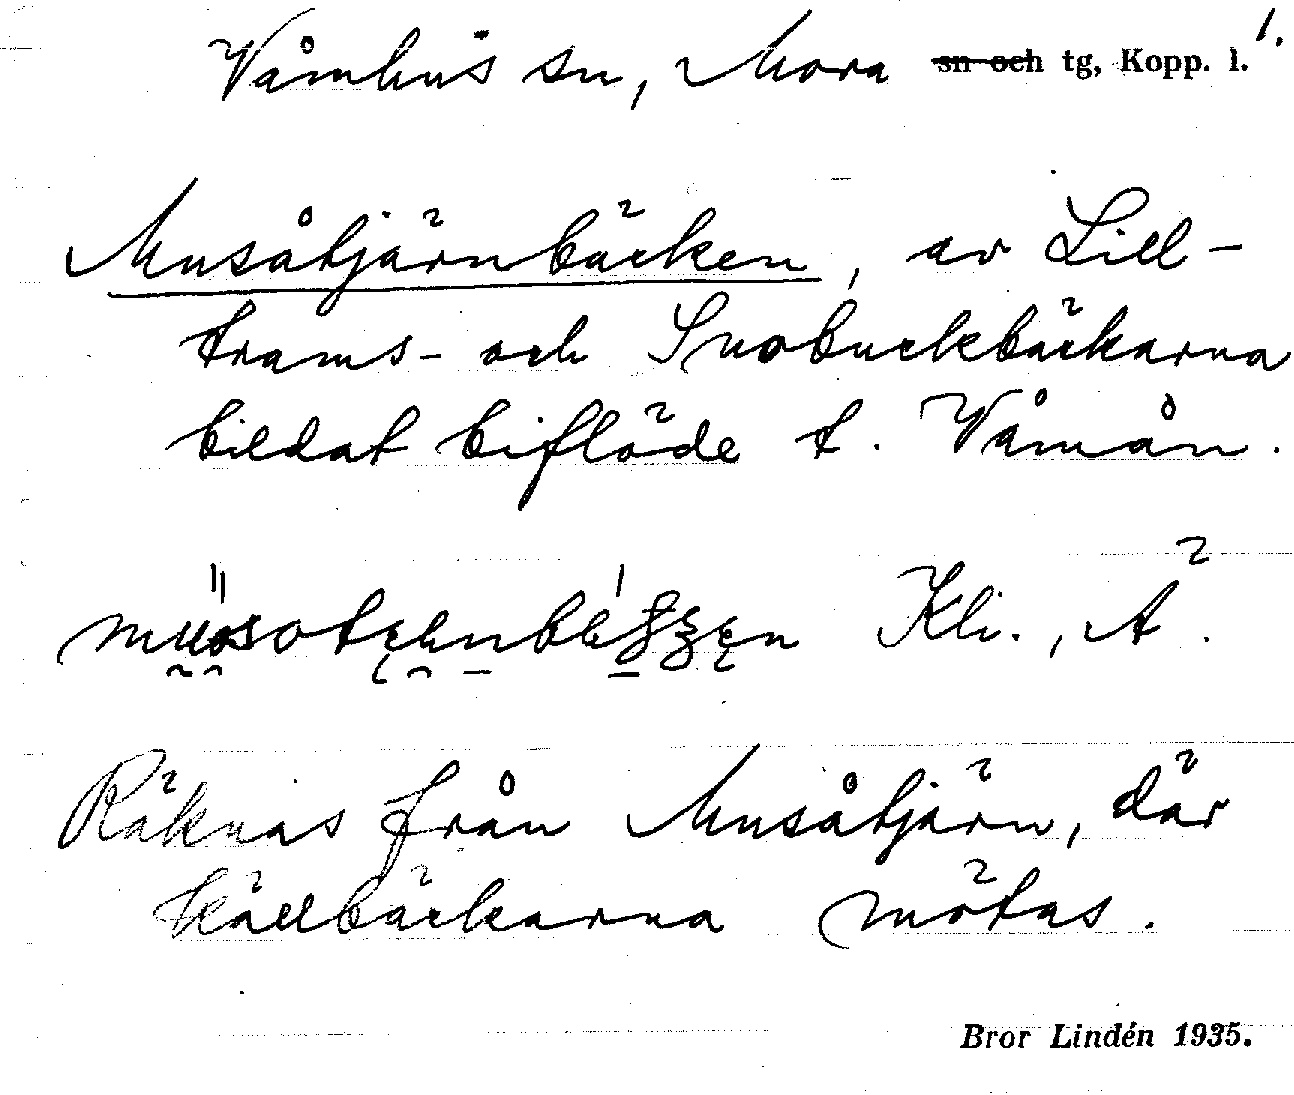 Våmhus sn, Mora sn och tg, Kopp. l. 1.
Musåtjärnbäcken, av Lill-
trams- och Snobuckbäckarna
bildat biflöde t. Våmån.
Kli., Ä.
Räknas från Musåtjärn, där
källbäckarna mötas.
Bror Lindén 1935.